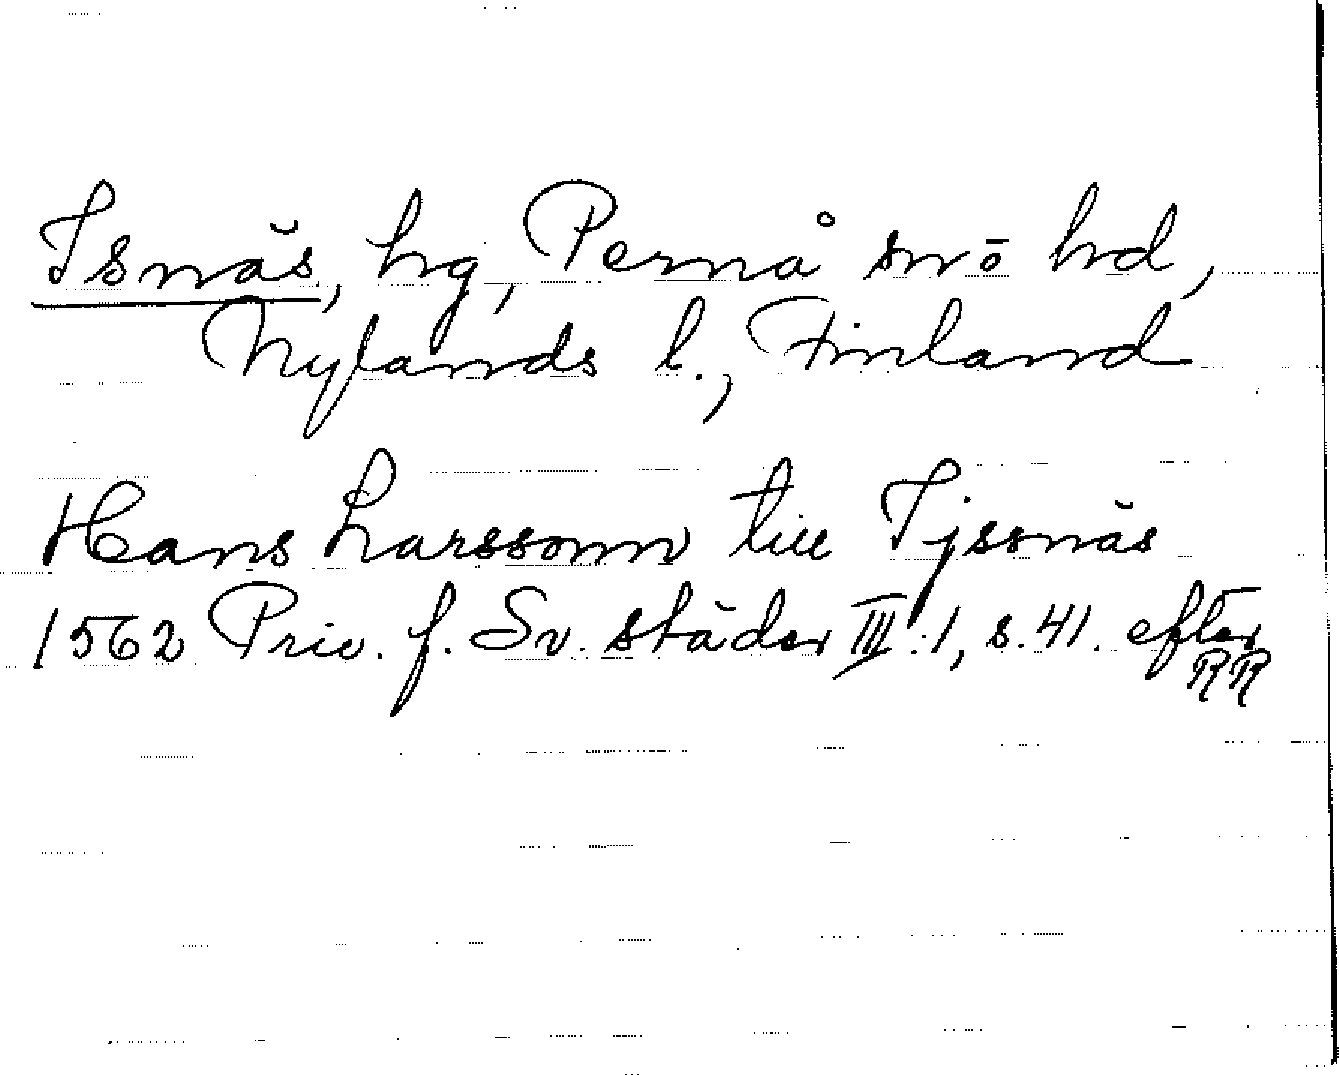 Isnäs, hg, Pernå sn o hd,
Nylands l., Finland
Hans Larssonn till Tjssnäs
1562 Priv. f. Sv. städer III:1, s. 41. efter
RR